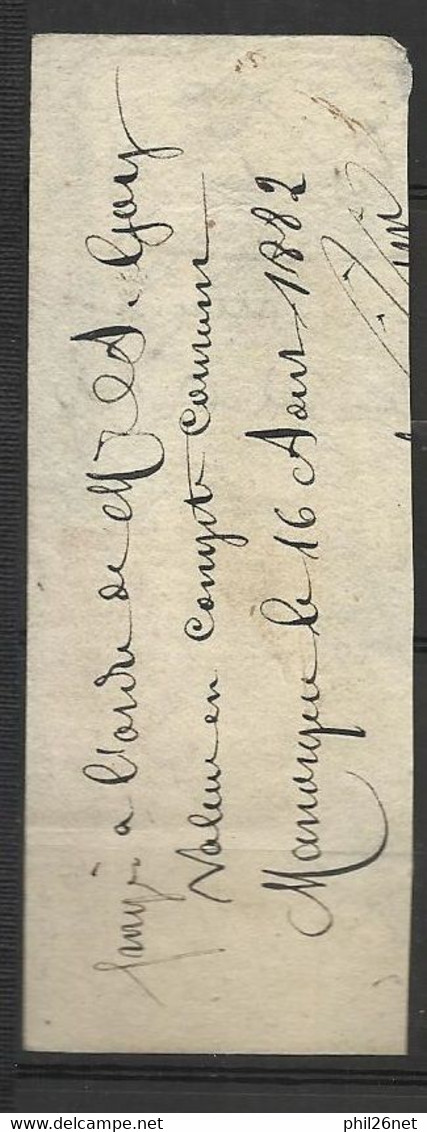 payé à l'ordre de Mr A. Gory
Valeur en Compte Courant
Manosque le 16 Aout 1882
www.delcampe.net
phil26net